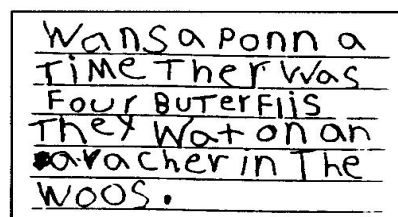 Wans a ponn a
TiMe Ther Was
Four BuTerFlis
They Wat on an
avacher in The
WOOS.